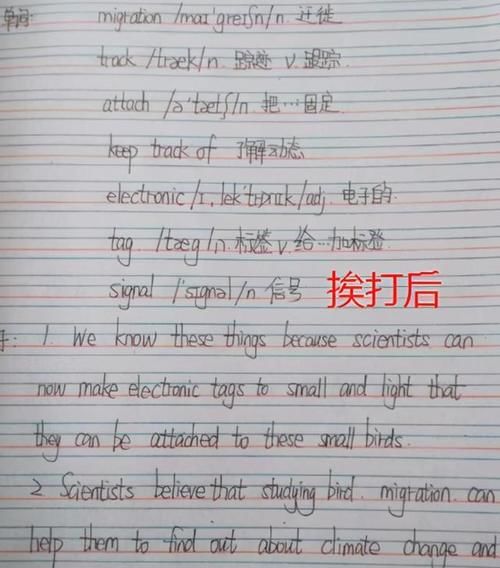 单词: migration /maɪ'greɪʃn/n. 迁徙
track /træk/n. 踪迹 v. 跟踪
attach /ə'tætʃ/n. 把…固定
keep track of 了解动态
electronic /ɪ,lek'trɒnɪk/adj. 电子的
tag /tæg/n. 标签 v. 给…加标签
signal /'sɪgnəl/n 信号 挨打后
子: 1. We know these things because scientists can
now make electronic tags to small and light that
they can be attached to these small birds.
2 Scientists believe that studying bird migration can
help them to find out about climate change and